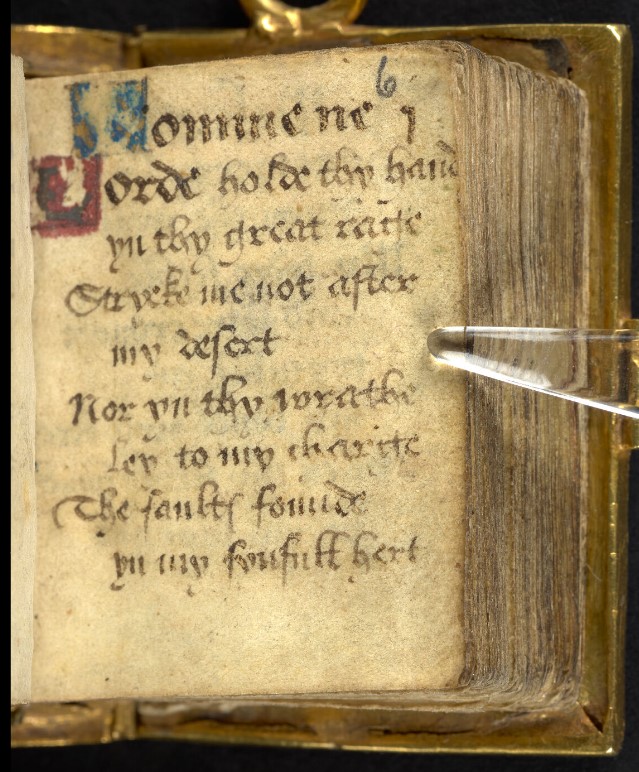 6
Domine ne i
Lorde holde thy hand
yn thy great rage
Stryke me not after
my desert
Nor yn thy wrathe
ley to my charge
The faultes founde
yn my synfull hert